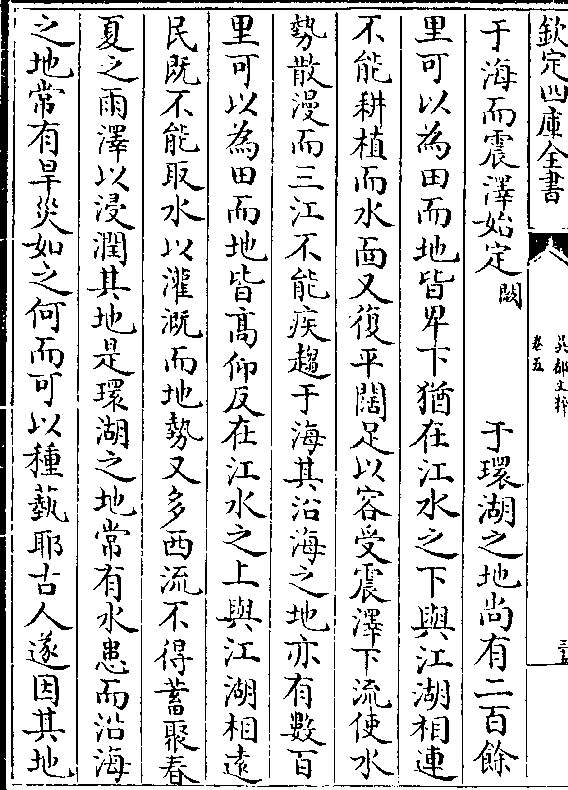 欽定四庫全書
吳都文粹
卷五
于海而震澤始定闕于環湖之地尚有二百餘
里可以為田而地皆卑下猶在江水之下與江湖相連
不能耕植而水面又復平闊足以容受震澤下流使水
勢散漫而三江不能疾趨于海其沿海之地亦有數百
里可以為田而地皆髙仰反在江水之上與江湖相逺
民既不能取水以灌溉而地勢又多西流不得蓄聚春
夏之雨澤以浸潤其地是環湖之地常有水患而沿海
之地常有旱災如之何而可以種藝耶古人遂因其地